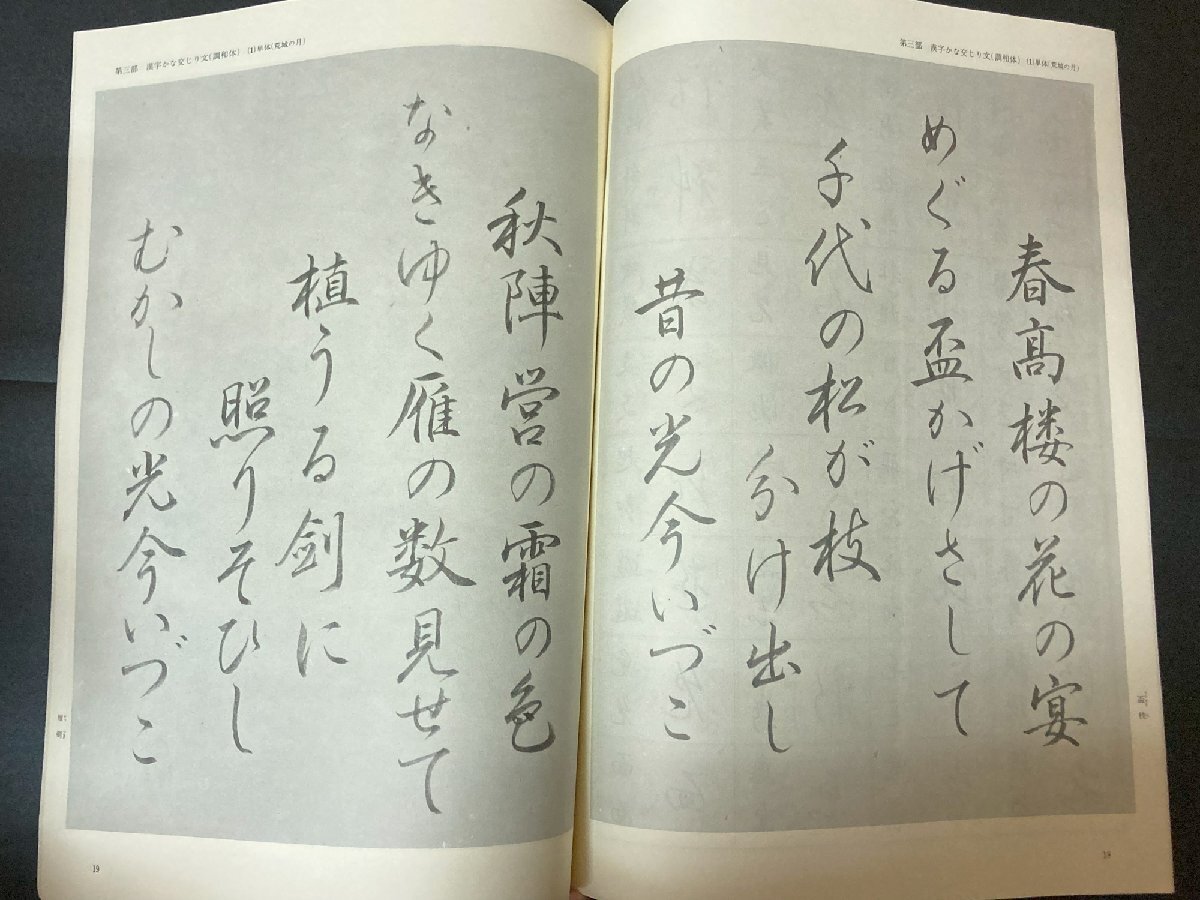 第三部 漢字かな交じり文(調和体) (1)単体(荒城の月)
春高楼の花の宴
めぐる盃かげさして
千代の松が枝
分け出し
昔の光今いづこ
18
第三部 漢字かな交じり文(調和体) (1)単体(荒城の月)
秋陣営の霜の色
なきゆく雁の数見せて
植うる剣に
照りそひし
むかしの光今いづこ
19